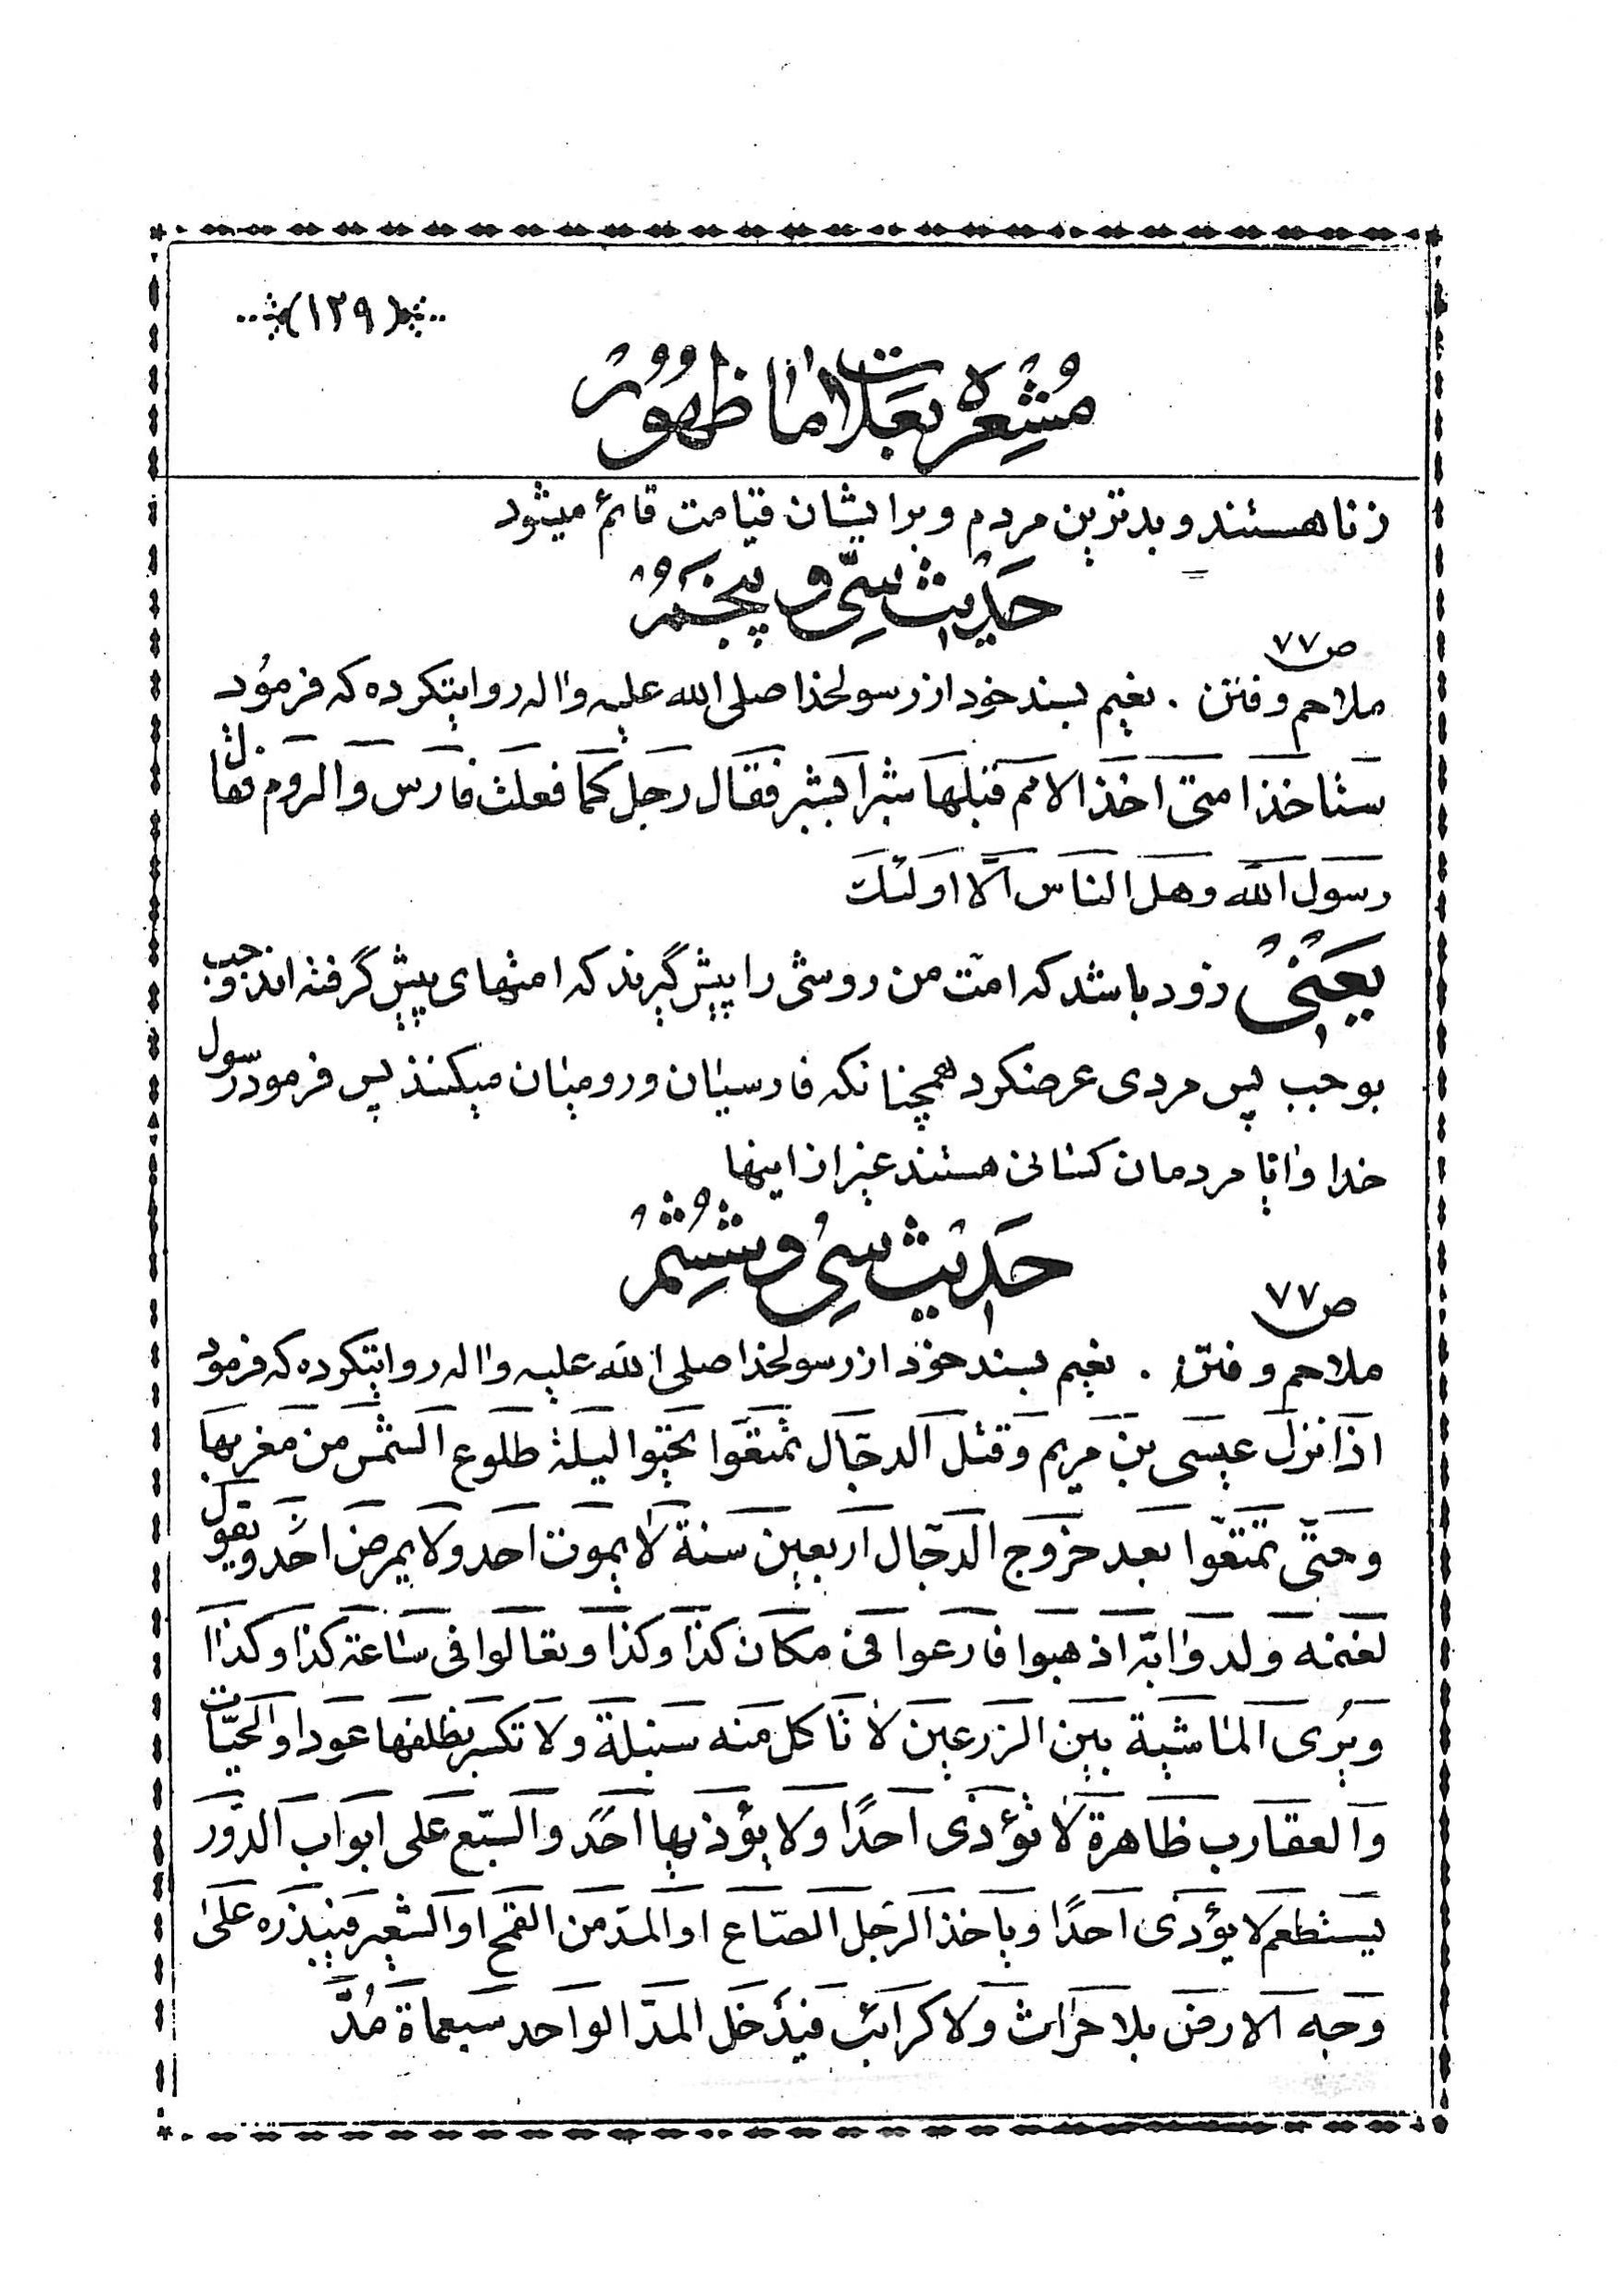 (۱۲۹)
مشعره بعلامات ظهور
زنا هستند و بدترین مردم و برایشان قیامت قائم میشود
حدیث سی و پنجم
ص ۷۷
ملاحم و فتن . نعیم بسند خود از رسولخدا صلی الله علیه واله روایتکرده که فرمود
ستاخذ امتی اخذ الامم قبلها شبرا بشبر فقال رجل کما فعلت فارس والروم فقال
رسول الله وهل الناس الا اولئک
یعنی زود باشد که امت من روشی را پیش گیرند که امتهای پیش گرفته اند وجب
بوجب پس مردی عرضکرد همچنانکه فارسیان و رومیان میکنند پس فرمود رسول
خدا و ایا مردمان کسانی هستند غیر از اینها
حدیث سی و ششم
ص ۷۷
ملاحم و فتن . نعیم بسند خود از رسولخدا صلی الله علیه واله روایتکرده که فرمود
اذا نزل عیسی بن مریم وقتل الدجال تمتعوا لیلة طلوع الشمس من مغربها
وحتی تمتعوا بعد خروج الدجال اربعین سنة لا یموت احد ولا یمرض احد ویقول
لغنمه ولدوابه اذهبوا فارعوا فی مکان کذا وکذا وتعالوا فی ساعة کذا وکذا
ویری الماشیة بین الزرعین لا تاکل منه سنبلة ولا تکسر بظلفها عودا والحیات
والعقارب ظاهرة لا تؤذی احدا ولا یؤذیها احد والسبع علی ابواب الدور
یستطعم لا یؤذی احدا ویاخذ الرجل الصاع او المد من القمح او الشعیر فیبذره علی
وجه الارض بلا حراث ولا کراب فیدخل المد الواحد سبعماة مد